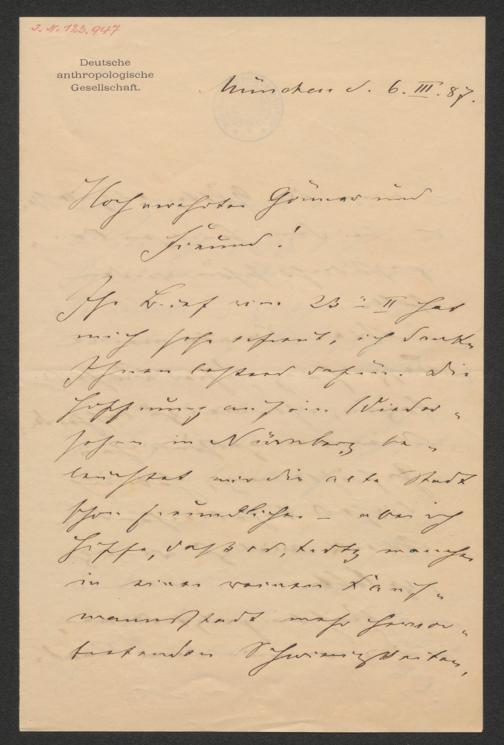 J. N. 123.947
Deutsche
anthropologische
Gesellschaft.
München d. 6. III. 87.
Hochverehrter Gönner und
Freund!
Ihr Brief vom 23ten II hat
mich sehr erfreut, ich danke
Ihnen bestens dafür. Die
Hoffnung auf ein Wieder-
sehen in Nürnberg be-
leuchtet mir die alte Stadt
schon freundlicher – aber ich
hoffe, daß es, trotz mancher
in einer reinen Kauf-
mannsstadt mehr hervor-
tretenden Schwierigkeiten,